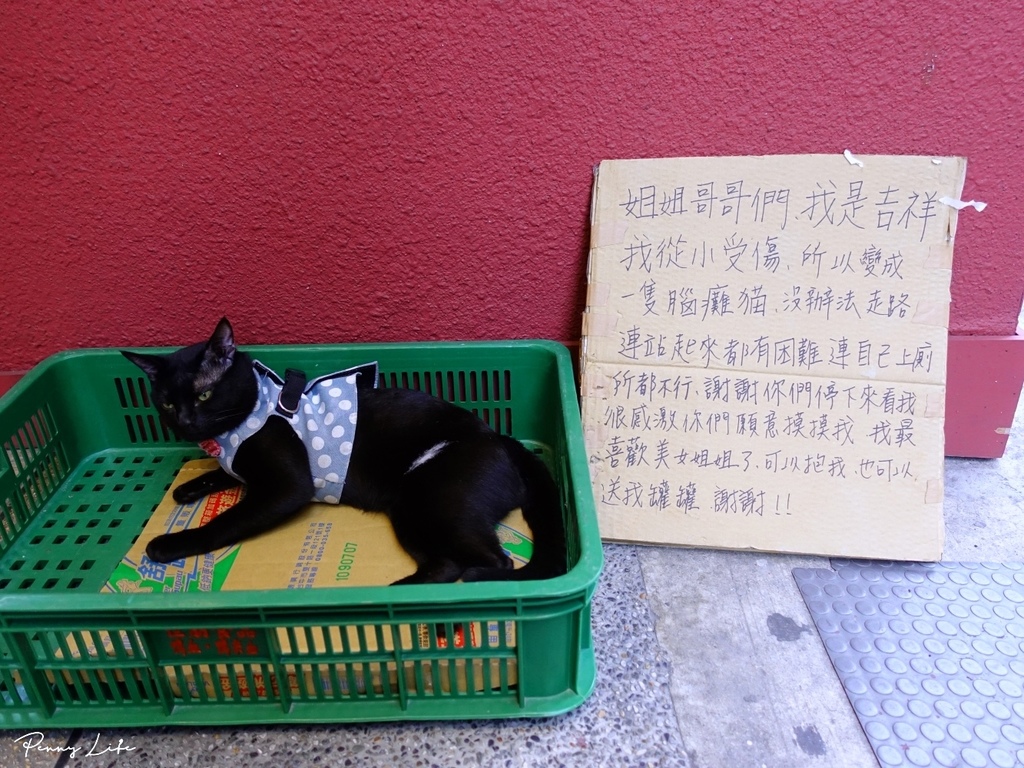 姐姐哥哥們、我是吉祥
我從小受傷、所以變成
一隻腦癱猫、没辦法走路
連站起來都有困難連自己上廁
所都不行、謝謝你們停下來看我
很感激你們願意摸摸我 我最
喜歡美女姐姐了、可以抱我、也可以
送我罐罐、謝謝!!
1090707
Penny Life